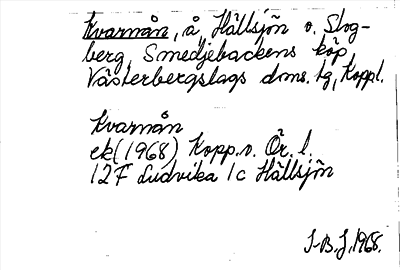 Kvarnån, å, Hällsjön o. Slog-
berg, Smedjebackens köp
Västerbergslags dms. tg, Koppl.
Kvarnån
ek(1968) Kopp. o. Ör. l.
12F Ludvika 1c Hällsjön
I-B.J. 1968.